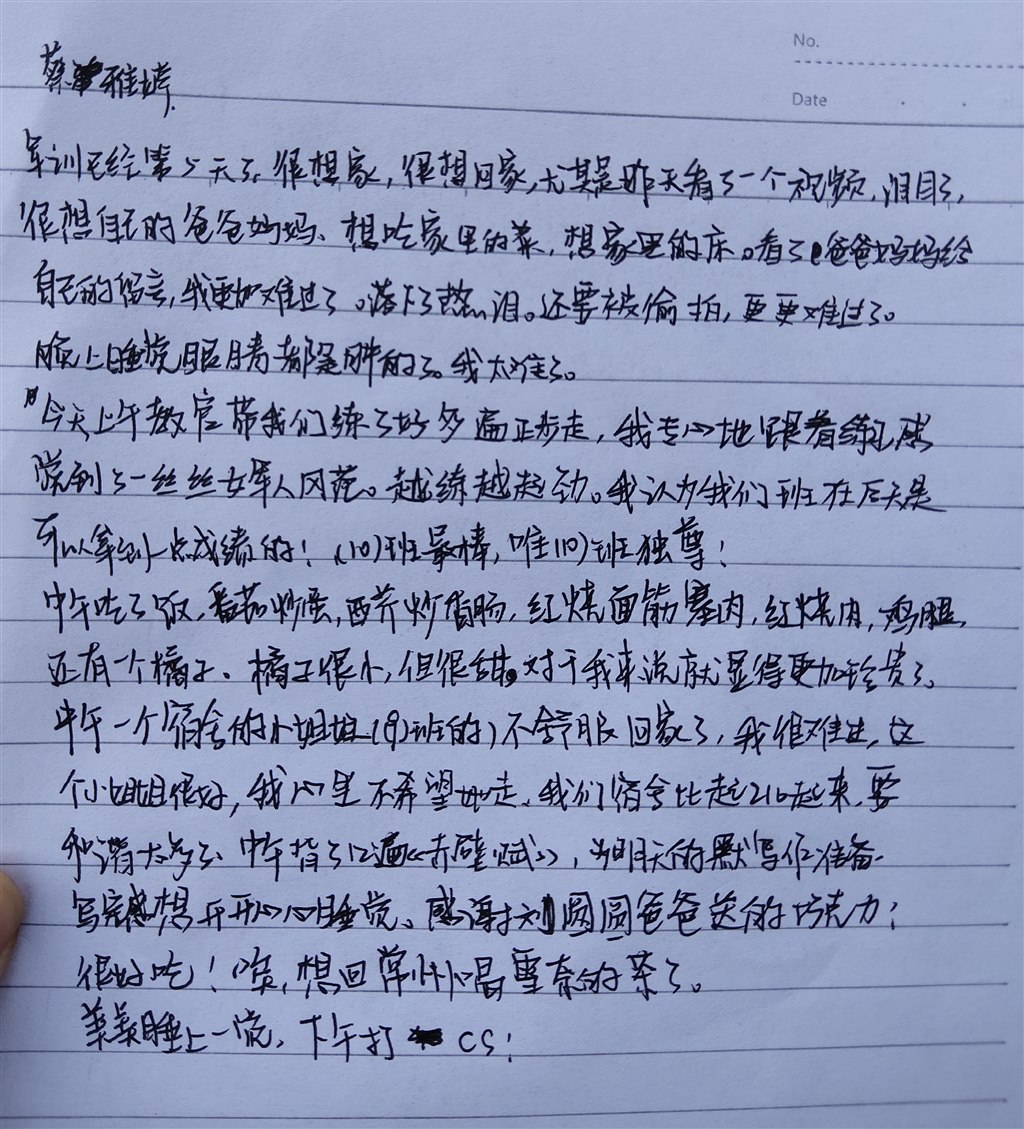 No.
Date
蔡雅婷
军训已经第5天了。很想家，很想回家，尤其是昨天看了一个视频，泪目了，
很想自己的爸爸妈妈、想吃家里的菜，想家里的床。看了爸爸妈妈给
自己的留言，我更加难过了。落下了热泪。还要被偷拍，更更难过了。
晚上睡觉眼睛都是肿的了。我太难了。
今天上午教官带我们练了好多遍正步走，我专心地跟着练习，感
觉到了一丝丝女军人风范。越练越起劲。我认为我们班在后天是
可以拿到一点成绩的！(10)班最棒，唯(10)班独尊！
中午吃了饭，番茄炒蛋，西芹炒香肠，红烧面筋塞肉，红烧肉，鸡腿，
还有一个橘子、橘子很小，但很甜。对于我来说就显得更加珍贵了。
中午一个宿舍的小姐姐(9)班的)不舒服回家了，我很难过，这
个小姐姐很好，我心里不希望她走。我们宿舍比起210起来，要
和谐太多了、中午背了12遍《赤壁赋》，为明天的默写作准备。
写完感想开开心心睡觉、感谢刘圆圆爸爸送的巧克力！
很好吃！唉，想回常州喝喜奈的茶了。
美美睡上一觉，下午打 CS！